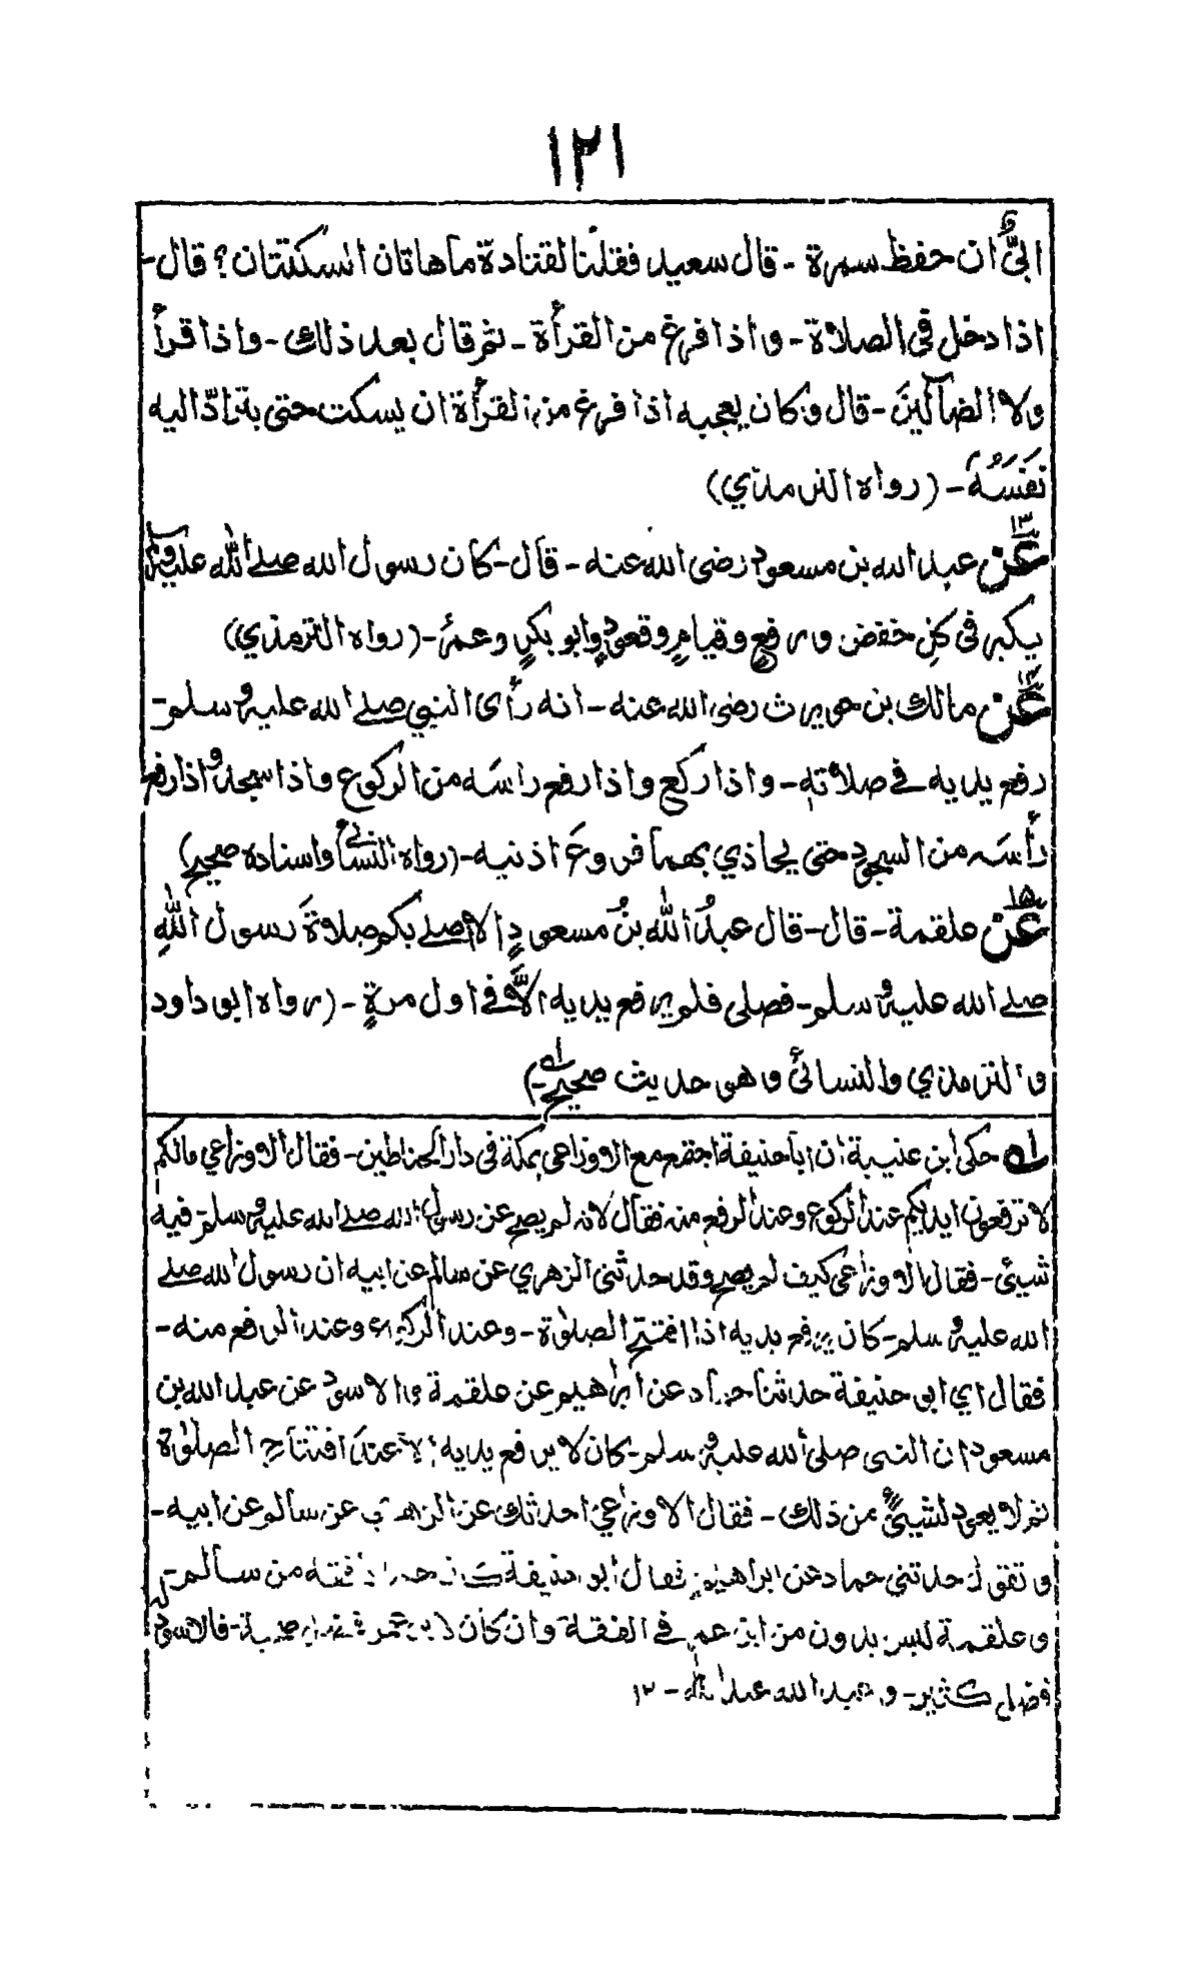 ١٢١
ابيٌّ ان حفظ سمرة - قال سعيد فقلنا لقتادة ما هاتان السكتتان؟ قال -
اذا دخل في الصلاة - واذا فرغ من القرأة - ثم قال بعد ذلك - واذا قرأ
ولا الضآلين - قال وكان يعجبه اذا فرغ من القرأة ان يسكت حتى يترادّ اليه
نَفَسُهُ - (رواه الترمذي)
١٣ عن عبد الله بن مسعود رضى الله عنه - قال - كان رسول الله صلے الله عليه وآله
يكبر فى كلِ خفض ورفعٍ وقيامٍ وقعودٍ وابو بكرٍ وعمرُ - (رواه الترمذي)
١٤ عن مالك بن حويرث رضى الله عنه - انه رأى النبي صلے الله عليه وسلم -
رفع يديه فے صلاتهِ - واذا ركع واذا رفع راسَه من الركوع واذا سجد واذا رفع
رأسَه من السجودِ حتى يحاذي بهما فروعَ اذنيه - (رواه النسائے واسناده صحيح)
١٥ عن علقمة - قال - قال عبدُ الله بنُ مسعودٍ الا اصلے بكم صلاةَ رسول اللهِ
صلے الله عليه وسلم - فصلى فلم يرفع يديه الاَّ فے اول مرةٍ - (رواه ابو داود
والترمذي والنسائى وهو حديث صحيح - ١ه)
١ه حكى ابن عنيبة ان ابا حنيفة اجتمع مع الاوزاعى بمكة فى دار الحناطين - فقال الاوزاعي مالكم
لا ترفعون ايديكم عند الركوع وعند الرفع منه فقال لانه لم يصح عن رسول الله صلے الله عليه وسلم فيه
شيئ - فقال الاوزاعى كيف لم يصح وقد حدثنى الزهري عن سالم عن ابيه ان رسول الله صلے
الله عليه وسلم - كان يرفع يديه اذا افتتح الصلوٰة - وعند الركوع وعند الرفع منه -
فقال اي ابو حنيفة حدثنا حماد عن ابراهيم عن علقمة والاسود عن عبد الله بن
مسعود ان النبى صلى الله عليه وسلم - كان لا يرفع يديه الا عند افتتاح الصلوٰة
ثم لا يعود لشيئٍ من ذلك - فقال الاوزاعي احدثك عن الزهري عن سالم عن ابيه -
وتقول حدثني حماد عن ابراهيم فقال ابو حنيفة كان حماد افقه من سالم -
وعلقمة ليس بدون من ابن عمر فے الفقة وان كان لابن عمر صحبة - فالاسود له
فضل كثير - وعبد الله عبد الله - ١٢